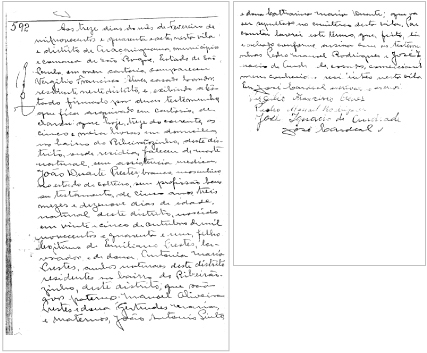 592
Aos treze dias do mês de Fevereiro de
mil novecentos e quarenta e sete, nesta vila
e distrito de Araçariguama, municipio
e comarca de São Roque, Estado de São
Paulo, em meu cartorio, compareceu
Vergilio Francisco Alves, lavrador,
residente neste distrito e, exibindo atés-
tado firmado por duas testemunhas,
que fica arquivado em cartorio, de-
clarou que hoje, treze do corrente, às
cinco e meia horas, em domicilio
no bairro do Ribeirãozinho, deste dis-
trito, onde residia, faleceu de morte
natural, sem assistencia medica
João Duarte Prestes, branco, masculino
no estado de solteiro, sem profissão, sem
testamento, de cinco anos três
mezes e dezenove dias de idade,
natural deste distrito, nascido
em vinte e cinco de Outubro de mil
novecentos e quarenta e um, filho
legitimo de Emiliano Prestes, la-
vrador e de dona Antonia Maria
Prestes, ambos naturaes deste distrito
residentes no bairro do Ribeirão-
zinho, deste distrito, que são
avós paternos Manoel Oliveira
Prestes e dona Gertrudes
e maternos, João Antonio
e dona Maria que vai
ser sepultado no cemiterio desta vila. Do
que, para constar lavrei este termo, que, feito, lido
e achado conforme assina com as testemu-
nhas Pedro Manoel Rodrigues e José Ig-
nacio de Andrade
meu conhecido
Eu José
Vergilio Francisco Alves
Pedro Manoel Rodrigues
José Ignacio de Andrade
José